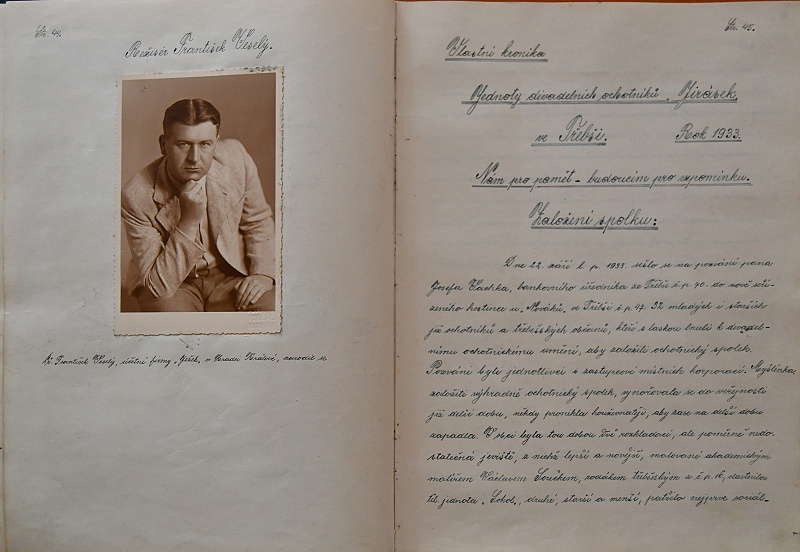 Str. 44.
Režisér František Veselý.
Až František Veselý, účetní firmy „Ješek“, v Hradci Králové, narodil se
Str. 45.
Vlastní kronika
Jednoty divadelních ochotníků „Jirásek“
ve Třebši. Rok 1933.
Nám pro paměť – budoucím pro vzpomínku.
Založení spolku:
Dne 22. září t. r. 1933. sešlo se na pozvání pana
Josefa Vacka, bankovního úředníka ze Třebše č.p. 70. do nově zří-
zeného hostince u „Nováků“, v Třebši č.p. 47. 32 mladých i starších
již ochotníků a třebešských občanů, kteří s laskou lnuli k divadel-
nímu ochotnickému umění, aby založili ochotnický spolek.
Pozváni byli jednotlivci i zástupcové místních korporací. Myšlénka,
založiti výhradně ochotnický spolek, vynořovala se do veřejnosti
již delší dobu, někdy pronikla houževnatěji, aby zase na delší dobu
zapadla. V obci byla tou dobou dvě rozkládací, ale poměrně nedo-
statečná jeviště, z nichž lepší a novější, malované akademickým
malířem Václavem Součkem, rodákem třebešským z č.p. 16, vlastnila
těl. jednota „Sokol“, druhé, starší a menší, patřilo nejprve sociál-